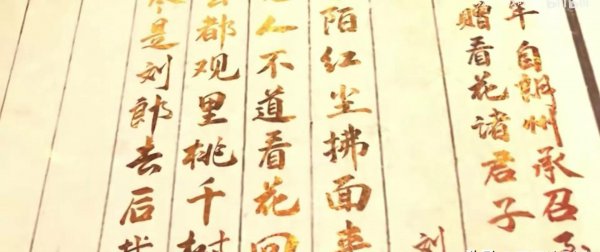 年自朗州承召
赠看花诸君子
刘
陌红尘拂面来
人不道看花回
都观里桃千树
尽是刘郎去后栽